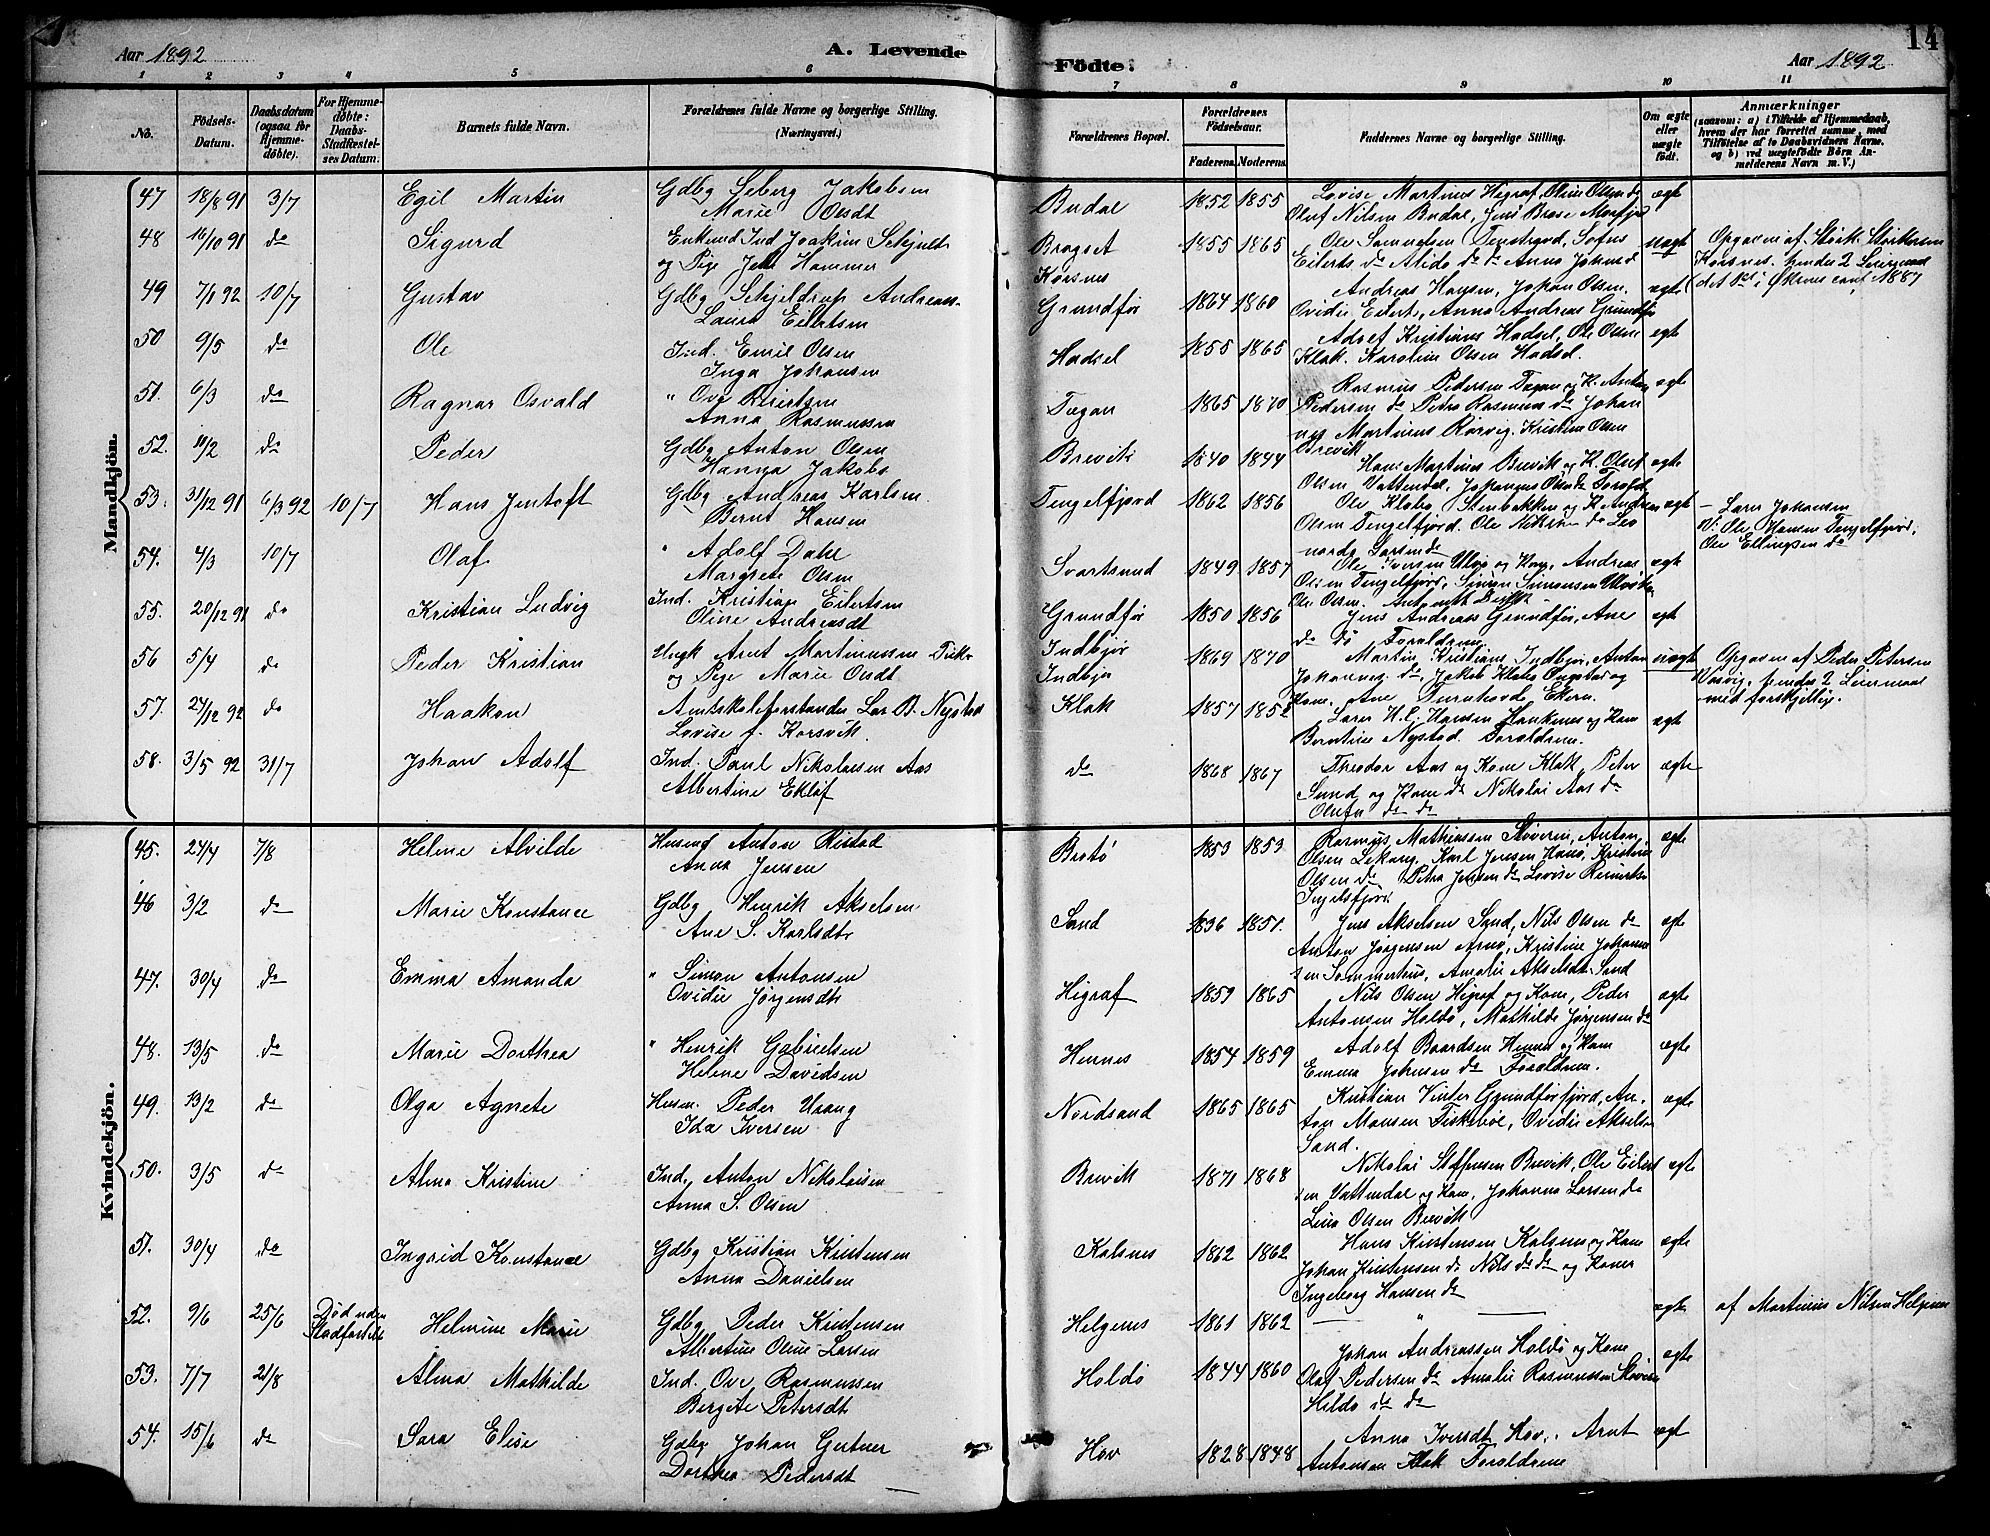 Aar 1892
A. Levende
Födte.
Aar 1892
14
1 2 3 4 5 6 7 8 9 10 11
No.
Födsels-Datum.
Daabsdatum (ogsaa for Hjemme-döbte).
For Hjemme-döbte: Daabs-Stadfæstel-ses Datum.
Barnets fulde Navn.
Forældrenes fulde Navne og borgerlige Stilling. (Næringsvei.)
Forældrenes Bopæl.
Forældrenes Födselsaar.
Faderens. Moderens.
Faddernes Navne og borgerlige Stilling.
Om ægte eller uægte födt.
Anmærkninger
(saasom: a) i Tilfælde af Hjemmedaab,
hvem der har forrettet samme, med
Tilföielse af to Daabsvidners Navne.
og b) ved uægtefödte Börn An-
melderens Navn m. V.)
Mandkjön.
47 18/8 91 3/7 Egil Martin Gdbg Seberg Jakobsen
Marie Olsdt
Budal 1852 1855 Lovise Martinus Higraf, Oline Olsen do
Oluf Nilsen Budal, Jens
ægte
48 16/10 91 do Sigurd Enkemd Ind Joakim
og Pige Hammer
Bragset
Korsnes
1855 1865 Ole Samuelsen
Eilerts do Alida do do Anna
uægte
49 7/1 92 10/7 Gustav Gdbg Schjeldrup Andreas-
Laura Eilertsen
Grundfør 1864 1860 Andreas Hansen, Johan Olsen.
Ovidie Eilerts, Anna Andreas Grundfør
ægte
50 9/5 do Ole Ind. Emil Olsen
Inga Johansen
Hadsel 1855 1865 Adolf Kristians Hadsel, Ole Olsen
Klak. Karoline Olsen Hadsel.
ægte
51. 6/3 do Ragnar Osvald " Ove
Anna Rasmussen
1865 1870 Rasmus Pedersen og K. Anton
Pedersen do Petra Rasmus do Johan
nes Martinus Rørvig. Kristine Olsen
Brevik
ægte
52. 11/2 do Peder Gdbg Anton Olsen
Hanna Jakobs
Brevik 1840 1844 Hans Martinus Brevik og K.
Olsen Vattendal, Johannes Olsen
ægte
53. 31/12 91 6/3 92 10/7 Hans Jentoft Gdbg Andreas Karlsen
Bernt Hansen
Tengelfjord 1862 1856 Ole Klobo, Stenbakken og K. Andrea
Olsen Tengelfjord. Ole
Larsen do
ægte
Lars Johansen
V: Ole Hansen Tengelfjord.
Ole Ellingsen do
54. 4/3 10/7 Olaf " Adolf Dahl
Margrete Olsen
Svartsund 1849 1857 Ole Iversen Ulvø og Kone, Andreas
Olsen Tengelfjord, Simon Simonsen
Ole Olsen.
ægte
55. 20/12 91 do Kristian Ludvig Ind. Kristian Eilertsen
Oline Andreasdt
Grundfør 1850 1856 Jens Andreas Grundfør, Ane
do do Forældrene
ægte
56 5/4 do Peder Kristian Ungk Arnt Martinussen
og Pige Marie Olsdt
Indbjør
Indbjør
1869 1870 Martin Kristians Indbjør, Anton
Johannes do, Jakob Klobo
uægte
Opgaven af Peder Petersen
hendes 2 Leiermaal
med forskjellig.
57. 27/12 92 do Haakon Amtskoleforstander Lar B. Nystad
Lovise f. Korsvik.
Klak 1857 1852 Lars H. C. Hansen Hanknes og Kone
Berntine Nystad. Forældrene.
ægte
58. 3/5 92 31/7 Johan Adolf Ind. Paul Nikolaisen Aas
Albertine Eklof
do 1868 1867 Theodor Aas og Kone Klak, Peter
Sund og Kone do Nikolai Aas do
do do
ægte
Kvindekjön.
45. 24/4 7/8 Helene Alvilde Husmd Anton Ristad
Anna Jensen
Brotø 1853 1853 Rasmus Mathiassen Stoverin, Anton
Olsen Lekang, Karl Jensen Hanø, Kristine
Olsen do Petra Jensen do Lovise Reinerts
Ingelsfjord
ægte
46 3/2 do Marie Konstance Gdbg Henrik Akselsen
Ane S. Karlsdtr
Sand 1836 1851. Jens Akselsen Sand, Nils Olsen do
Anton Jørgensen Arnø, Kristine Johanne
sen Sommerhus, Amalie Akselsdt. Sand
ægte
47. 30/4 do Emma Amanda " Simon Antonsen
Ovidie Jørgensdt
Higraf 1859 1865 Nils Olsen Higraf og Kone, Peder
Antonsen Holdø, Mathilde Jørgensen do
ægte
48. 13/5 do Marie Dorthea " Henrik Gabrielsen
Helene Davidsen
Hennes 1854 1859 Adolf Baardsen Hennes og Kone
Emma Johnsen do Forældrene.
ægte
49. 13/2 do Olga Agnete Husm. Peder Urang
Ida Iversen
Nordsand 1865 1865 Kristian Vinter Grundførfjord, An-
ton Monsen Fiskebøl, Ovidie Akselsen
Sand.
ægte
50. 3/5 do Alma Kristine Ind. Anton Nikolaisen
Anna S. Olsen
Brevik 1871 1868 Nikolai Steffensen Brevik, Ole Eilert
sen Vattendal og Kone, Johanna Larsen do
Lina Olsen Brevik
ægte
51. 30/4 do Ingrid Konstance Gdbg Kristian Kristensen
Anna Danielsen
Kalsnes 1862 1862 Hans Kristensen Kalsnes og Kone
Johan Kristensen do Nils do do og Koner
Ingeborg Hansen do
ægte
52. 9/6 25/6 Død uden
Stadfæstelse
Helmine Marie Gdbg Peder Kristensen
Albertine Oline Larsen
Helgenes 1861 1862 — " —
ægte
af Martinus Nilsen Helgenes
53. 7/7 21/8 Alma Mathilde Ind. Ove Rasmussen
Bergete Petersdt
Holdø 1844 1860 Johan Andreassen Holdø og Kone
Olaf Pedersen do Amalie Rasmussen
Hildo do do
ægte
54. 15/6 do Sara Elise Gdbg Johan Gertner
Dorthea Pedersdt
Hov 1828 1848 Anna Iversdt Hov. Arnt
Antonsen Klak Forældrene
ægte